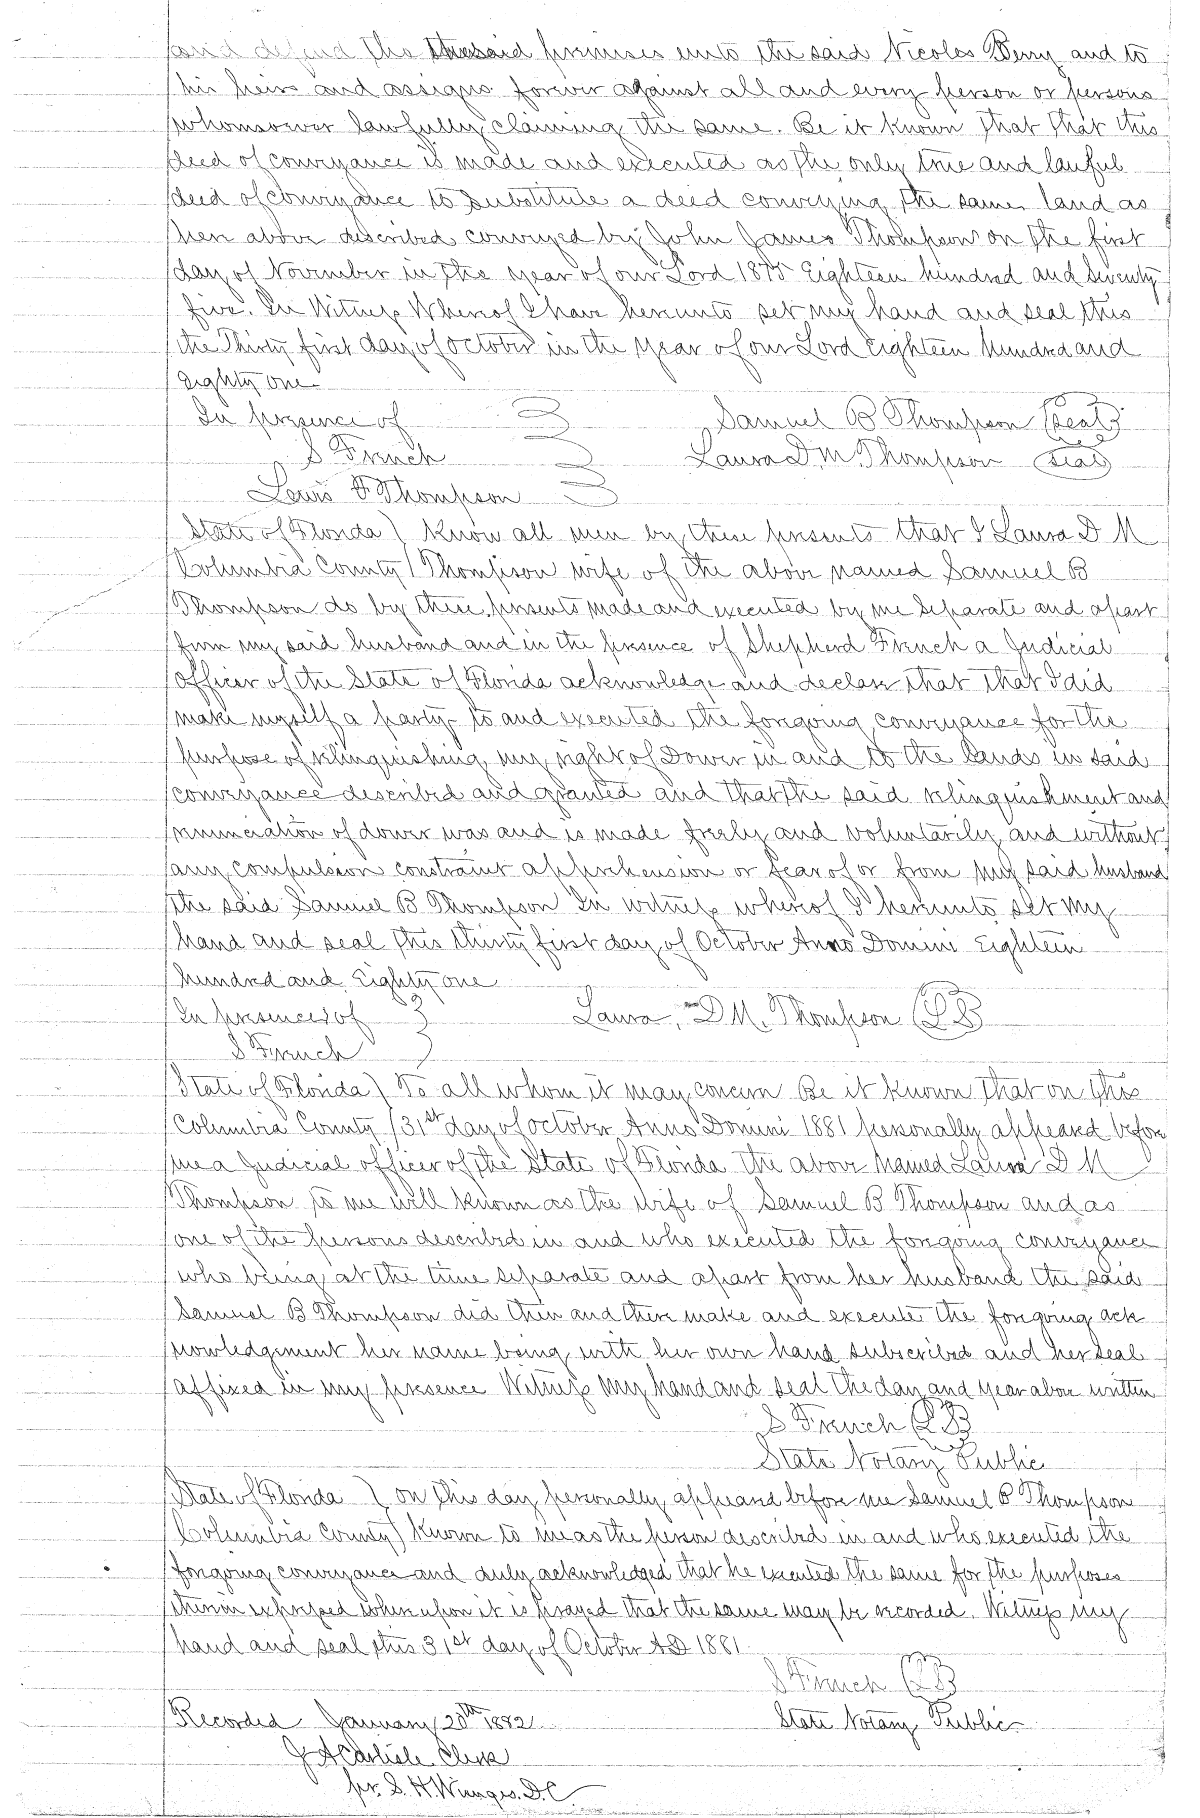 and defend the thesaid premises unto the said Nicolas Berry and to
his heirs and assigns forever against all and every person or persons
whomsoever lawfully claiming the same. Be it known that that this
deed of conveyance is made and executed as the only true and lawful
deed of conveyance to substitute a deed conveying the same land as
here above described conveyed by John James Thompson on the first
day of November in the year of our Lord 1875 Eighteen hundred and Seventy
five. In Witness Whereof I have hereunto set my hand and seal this
the Thirty first day of October in the year of our Lord Eighteen hundred and
Eighty one
In presence of Samuel B Thompson (seal)
S French Laura D. M. Thompson (seal)
Lewis F Thompson
State of Florida ) Know all men by these presents that I Laura D M
Columbia County ) Thompson wife of the above named Samuel B
Thompson do by these presents made and executed by me separate and apart
from my said husband and in the presence of Shepherd French a Judicial
Officer of the State of Florida acknowledge and declare that that I did
make myself a party to and executed the forgoing conveyance for the
purpose of relinquishing my right of Dower in and to the lands in said
conveyance described and granted and that the said relinquishment and
renunciation of dower was and is made freely and voluntarily and without
any compulsion constraint apprehension or fear of or from my said husband
the said Samuel B Thompson In witness whereof I hereunto set my
hand and seal this thirty first day of October Anno Domini Eighteen
hundred and Eighty one
In presence of Laura, D M. Thompson
S French
State of Florida ) To all whom it may concern Be it known that on this
Columbia County ) 31st day of October Anno Domini 1881 personally appeared before
me a Judicial officer of the State of Florida the above named Laura D M
Thompson to me well known as the wife of Samuel B Thompson and as
one of the persons described in and who executed the forgoing conveyance
who being at the time separate and apart from her husband the said
Samuel B Thompson did then and there make and execute the forgoing ack
nowledgement her name being with her own hand subscribed and her seal
affixed in my presence Witness my hand and seal the day and year above written
S French
State Notary Public
State of Florida ) on this day personally appeared before me Samuel B Thompson
Columbia County ) known to me as the person described in and who executed the
forgoing conveyance and duly acknowledged that he executed the same for the purposes
therein expressed whereupon it is prayed that the same may be recorded. Witness my
hand and seal this 31st day of October AD 1881
S French
Recorded January 20th 1882 State Notary Public
J A Carlisle Clerk
pr. S. H. D. C.